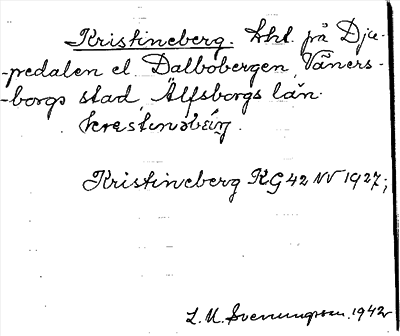 Kristineberg. Lht. på Dju-
-pedalen el Dalbobergen, Väners-
-borgs stad, Älfsborgs län.
krɛstɩnəbɛ́rj.
Kristineberg KG 42 NV 1927;
L. M. Svenungsson. 1942